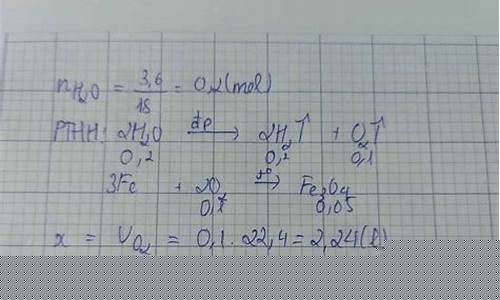 nH₂O = 3,6/18 = 0,2 (mol)
PTHH: 2H₂O →đp 2H₂↑ + O₂↑
0,2 0,2 0,1
3Fe + 2O₂ →t° Fe₃O₄
0,1 0,05
x = VO₂ = 0,1 . 22,4 = 2,24 (l)